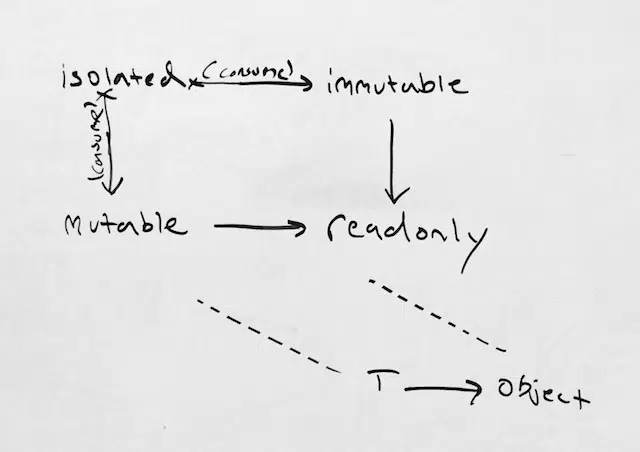 isolated (consume) immutable
(consume)
Mutable readonly
T Object